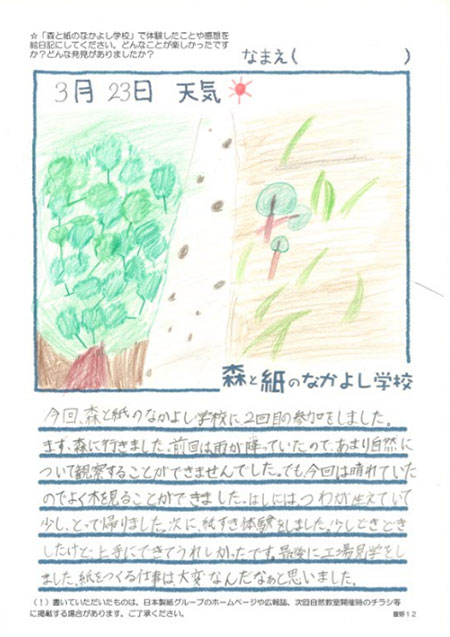 ☆「森と紙のなかよし学校」で体験したことや感想を
絵日記にしてください。どんなことが楽しかったです
か?どんな発見がありましたか?
なまえ(　　　　)
3月 23日 天気
森と紙のなかよし学校
今回、森と紙のなかよし学校に2回目の参加をしました。
まず、森に行きました。前回は雨が降っていたので、あまり自然に
ついて観察することができませんでした。でも、今回は晴れていた
のでよく木を見ることができました。はしには、つわが生えていて
少し、とって帰りました。次に、紙すき体験をしました。少しどきどき
したけど、上手にできてうれしかったです。最後に工場見学をし
ました。紙をつくる仕事は、大変なんだなぁと思いました。
(!)書いていただいたものは、日本製紙グループのホームページや広報誌、次回自然教室開催時のチラシ等
に掲載する場合があります。ご了承ください。